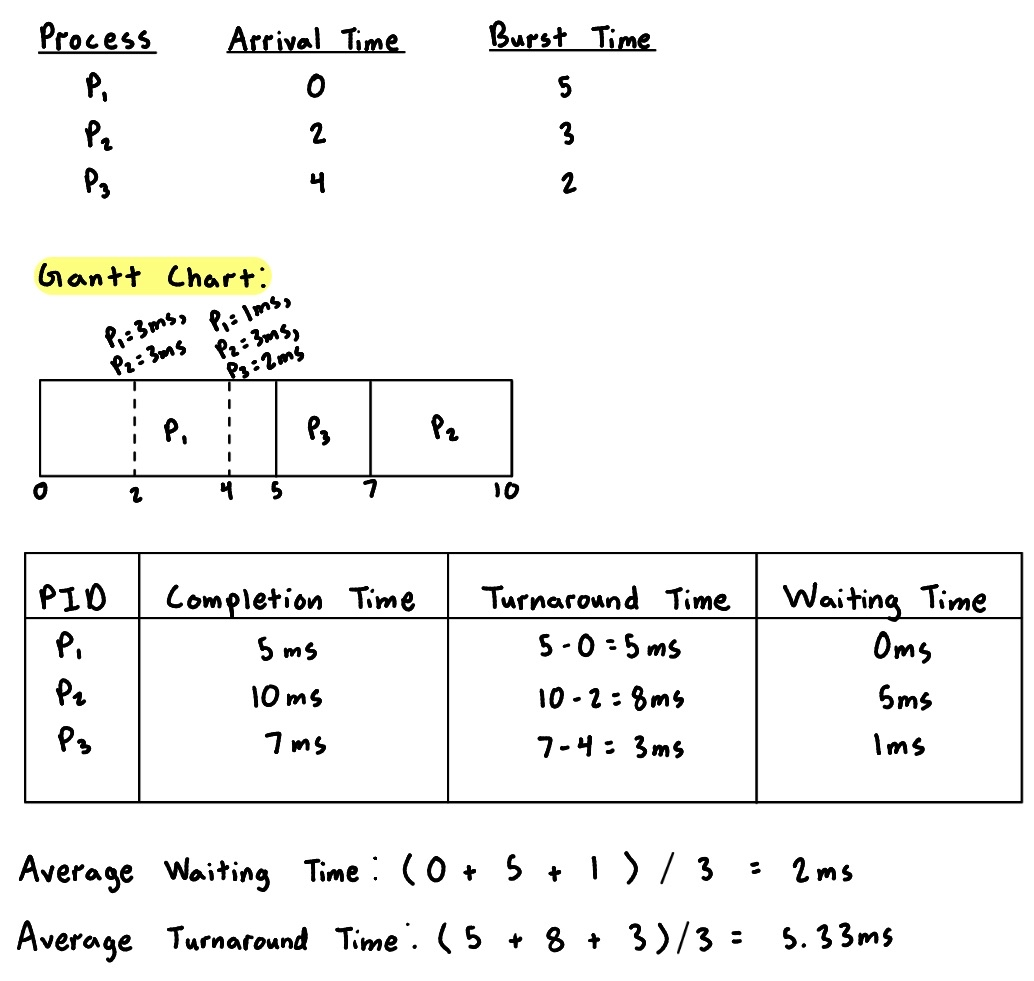 Process Arrival Time Burst Time
P₁ 0 5
P₂ 2 3
P₃ 4 2
Gantt Chart:
P₁=3ms,
P₂=3ms
P₁=1ms,
P₂=3ms,
P₃=2ms
P₁ P₃ P₂
0 2 4 5 7 10
PID Completion Time Turnaround Time Waiting Time
P₁ 5ms 5-0=5ms 0ms
P₂ 10ms 10-2=8ms 5ms
P₃ 7ms 7-4=3ms 1ms
Average Waiting Time: (0 + 5 + 1) / 3 = 2ms
Average Turnaround Time: (5 + 8 + 3)/3 = 5.33ms